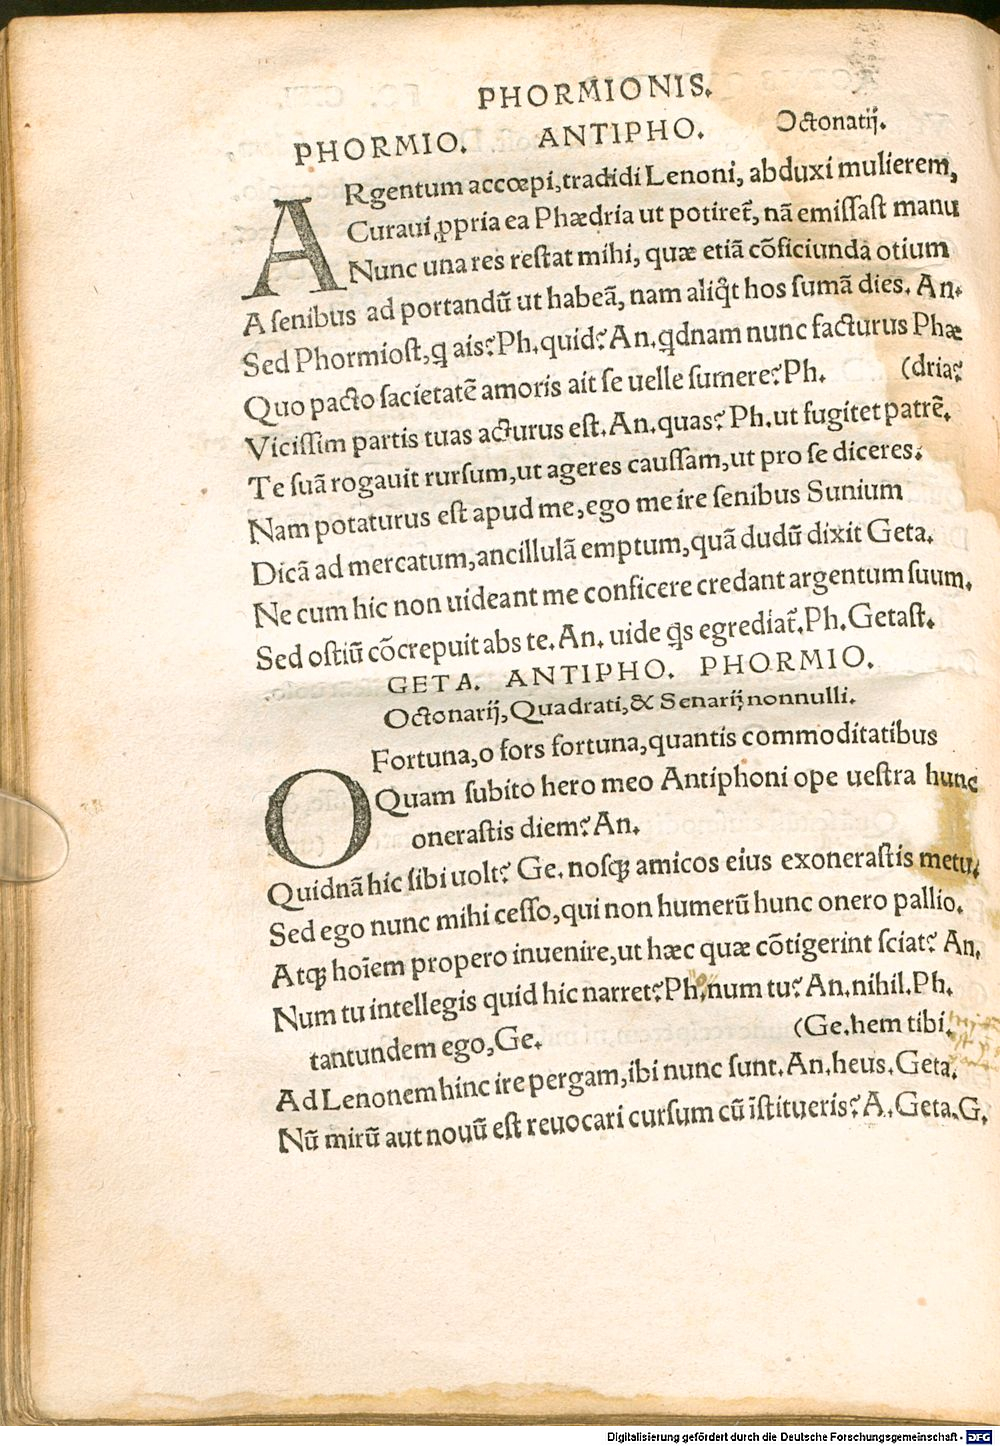 PHORMIONIS.
PHORMIO. ANTIPHO. Octonatij.
ARgentum accœpi,tradidi Lenoni, abduxi mulierem,
Curaui ꝓpria ea Phædria ut potireť, nã emiſſaſt manu
Nunc una res reſtat mihi, quæ etiã cõficiunda otium
A ſenibus ad portandũ ut habeã, nam aliq̃t hos ſumã dies. An.
Sed Phormioſt,q ais? Ph.quid? An.qdnam nunc facturus Phæ
Quo pacto ſacietatẽ amoris ait ſe uelle ſumere? Ph. (dria?
Viciſſim partis tuas acturus eſt. An.quas? Ph.ut fugitet patrẽ.
Te ſuã rogauit rurſum,ut ageres cauſſam,ut pro ſe diceres.
Nam potaturus eſt apud me,ego me ire ſenibus Sunium
Dicã ad mercatum,ancillulã emptum,quã dudũ dixit Geta.
Ne cum hic non uideant me conficere credant argentum ſuum.
Sed oſtiũ cõcrepuit abs te. An. uide q̃s egrediať.Ph.Getaſt.
GETA. ANTIPHO. PHORMIO.
Octonarij,Quadrati,& Senarij nonnulli.
O Fortuna,o fors fortuna,quantis commoditatibus
Quam ſubito hero meo Antiphoni ope ueſtra hunc
oneraſtis diem? An.
Quidnã hic ſibi uolt? Ge. noſqꝫ amicos eius exoneraſtis metu.
Sed ego nunc mihi ceſſo,qui non humerũ hunc onero pallio.
Atqꝫ hoĩem propero inuenire,ut hæc quæ cõtigerint ſciat? An.
Num tu intellegis quid hic narret? Ph.num tu? An.nihil.Ph.
tantundem ego,Ge. (Ge.hem tibi.
Ad Lenonem hinc ire pergam,ibi nunc ſunt. An.heus.Geta.
Nũ mirũ aut nouũ eſt reuocari curſum cũ ĩſtitueris? A.Geta.G.
Digitalisierung gefördert durch die Deutsche Forschungsgemeinschaft - DFG